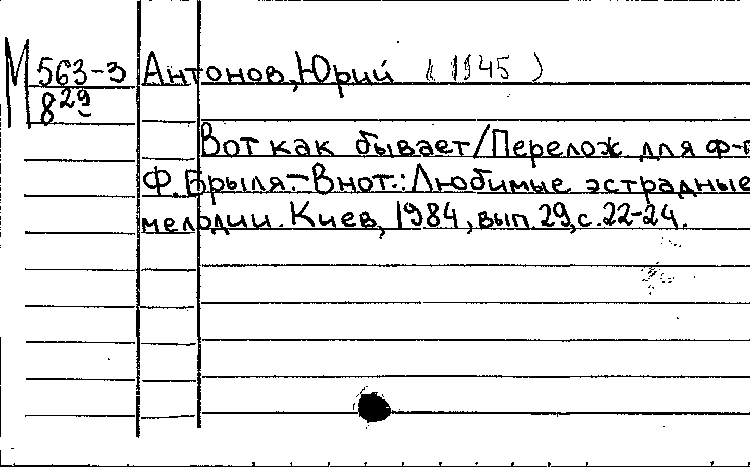 М 563-3 Антонов, Юрий (1945 )
8 29
Вот как бывает/Перелож для ф-п
Ф. Брыля.- В нот.: Любимые эстрадные
мелодии. Киев, 1984, вып. 29, с. 22-24.